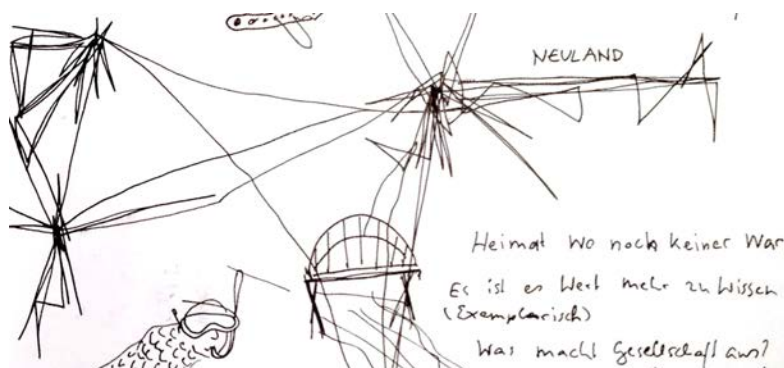 NEULAND
Heimat wo noch keiner war
Es ist es Wert mehr zu Wissen
(Exemplarisch)
Was macht Gesellschaft aus?